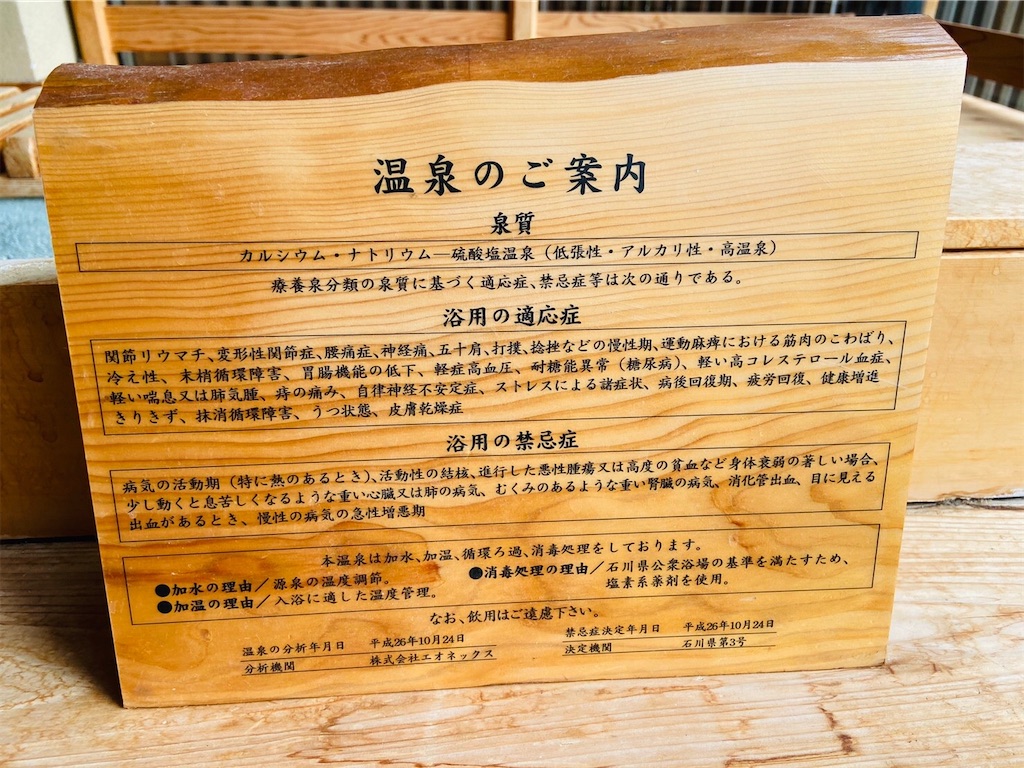 温泉のご案内
泉質
カルシウム・ナトリウム―硫酸塩温泉（低張性・アルカリ性・高温泉）
療養泉分類の泉質に基づく適応症、禁忌症等は次の通りである。
浴用の適応症
関節リウマチ、変形性関節症、腰痛症、神経痛、五十肩、打撲、捻挫などの慢性期、運動麻痺における筋肉のこわばり、
冷え性、末梢循環障害、胃腸機能の低下、軽症高血圧、耐糖能異常（糖尿病）、軽い高コレステロール血症、
軽い喘息又は肺気腫、痔の痛み、自律神経不安定症、ストレスによる諸症状、病後回復期、疲労回復、健康増進
きりきず、抹消循環障害、うつ状態、皮膚乾燥症
浴用の禁忌症
病気の活動期（特に熱のあるとき）、活動性の結核、進行した悪性腫瘍又は高度の貧血など身体衰弱の著しい場合、
少し動くと息苦しくなるような重い心臓又は肺の病気、むくみのあるような重い腎臓の病気、消化管出血、目に見える
出血があるとき、慢性の病気の急性増悪期
本温泉は加水、加温、循環ろ過、消毒処理をしております。
●加水の理由／源泉の温度調節。
●加温の理由／入浴に適した温度管理。
●消毒処理の理由／石川県公衆浴場の基準を満たすため、
塩素系薬剤を使用。
なお、飲用はご遠慮下さい。
温泉の分析年月日 平成26年10月24日
分析機関 株式会社エオネックス
禁忌症決定年月日 平成26年10月24日
決定機関 石川県第3号